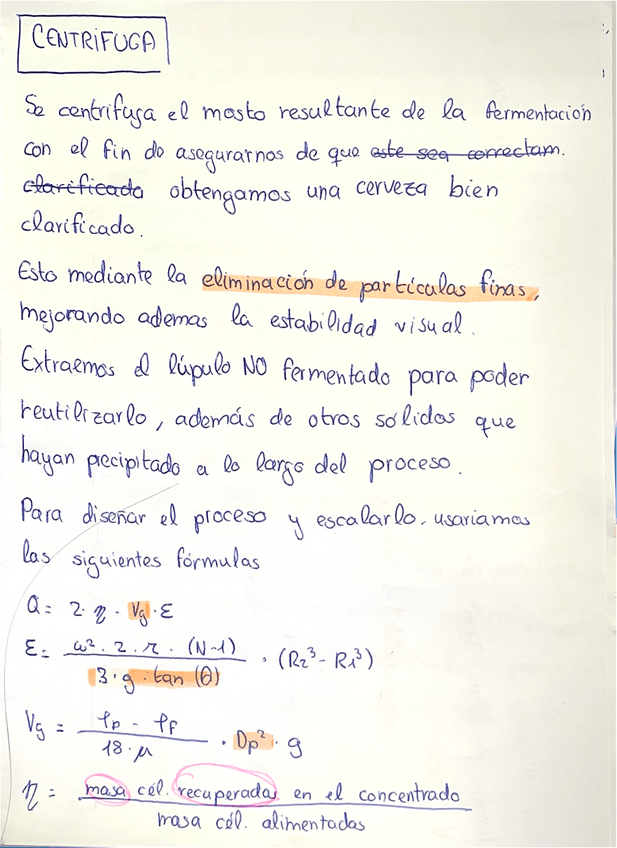 CENTRIFUGA
Se centrifuga el mosto resultante de la fermentación
con el fin de asegurarnos de que este sea correctam.
clarificada obtengamos una cerveza bien
clarificado.
Esto mediante la eliminación de partículas finas,
mejorando ademas la estabilidad visual.
Extraemos el lúpulo NO fermentado para poder
reutilizarlo, además de otros sólidos que
hayan precipitado a lo largo del proceso.
Para diseñar el proceso y escalarlo, usariamos
las siguientes fórmulas
Q = 2 · η · Vg · Σ
Σ = ω² · 2 · π · (N-1) / 3 · g · tan (θ) · (R2³ - R1³)
Vg = ρp - ρf / 18 · μ · Dp² · g
η = masa cél. recuperadas en el concentrado / masa cél. alimentadas